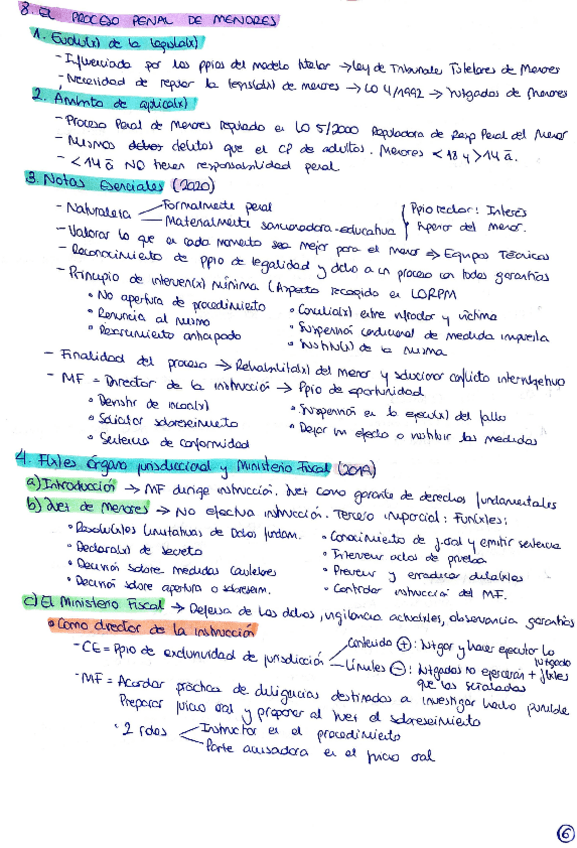 8. EL PROCESO PENAL DE MENORES
1. Evoluc(x) de la legisla(x)
- Influenciada por los ppios del modelo tutelar → Ley de Tribunales Tutelares de Menores
- Necesidad de regular la legisla(x) de menores → LO 4/1992 → Juzgados de Menores
2. Ámbito de aplica(x)
- Proceso Penal de Menores regulado en LO 5/2000 Reguladora de Resp Penal del Menor
- Mismos delitos que el CP de adultos. Menores < 18 y > 14 a.
- < 14 a NO tienen responsabilidad penal
3. Notas Esenciales (2020)
- Naturaleza Formalmente penal
Materialmente sancionadora-educativa
Ppio rector: Interés superior del menor.
- Valorar lo que en cada momento sea mejor para el menor ⇒ Equipos Técnicos
- Reconocimiento de ppio de legalidad y dcho a un proceso con todas garantías
- Principio de interven(x) mínima (Aspecto recogido en LORPM
• No apertura de procedimiento
• Renuncia al mismo
• Resarcimiento anticipado
• Concilia(x) entre infractor y víctima
• Suspensión condicional de medida impuesta
• Sustitu(x) de la misma
- Finalidad del proceso → Rehabilita(x) del menor y solucionar conflicto intersubjetivo
- MF = Director de la instrucción → Ppio de oportunidad
• Desistir de incoa(x)
• Solicitar sobreseimiento
• Sentencia de conformidad
• Suspensión en la ejecu(x) del fallo
• Dejar sin efecto o sustituir las medidas
4. F(x)les órgano jurisdiccional y Ministerio Fiscal (2019)
a) Introducción → MF dirige instrucción. Juez como garante de derechos fundamentales
b) Juez de Menores → No efectua instrucción. Tercero imparcial: Fun(x)es:
• Resolu(x)es limitativas de Dchos fundam.
• Declara(x) de secreto
• Decisión sobre medidas cautelares
• Decisión sobre apertura o sobreseim.
• Conocimiento de j.oral y emitir sentencia
• Intervenir actos de prueba
• Prevenir y erradicar dila(x)es
• Controlar instrucción del MF.
c) El Ministerio Fiscal → Defensa de los dchos, vigilancia actua(x)es, observancia garantías
• Como director de la instrucción
- CE = Ppio de exclusividad de jurisdicción
Contenido (+): Juzgar y hacer ejecutar lo juzgado
Límites (-): Juzgados no ejercerán + f(x)es que las señaladas
- MF = Acordar práctica de diligencias destinadas a investigar hecho punible
Preparar juicio oral y proponer al Juez el sobreseimiento
• 2 roles Instructor en el procedimiento
Parte acusadora en el juicio oral
6